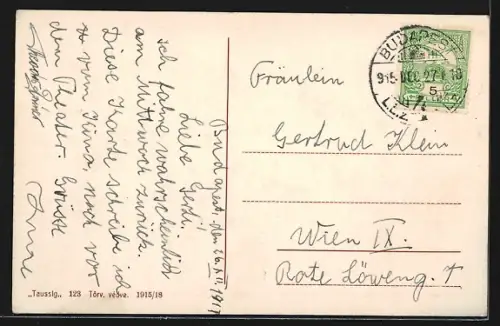 Budapest, den 26. XII. 191
Liebe Gerti!
Ich fahre wahrscheinlich
am Mittwoch zurück.
Diese Karte schreibe ich
vom Kino, noch vor
dem Theater. Grüsse
Fräulein
Gertrud Klein
Wien IX.
Rote Löweng. 7
BUDAPEST
915 DEC 27
5
„Taussig„ 123 Törv. védve. 1915/18